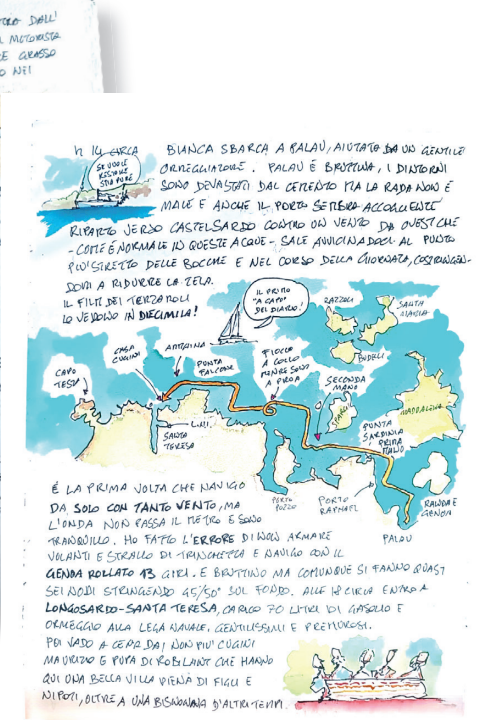 DALL'
MOTORISTA
GRASSO
NEI
h 14 CIRCA
SE VUOLE
RESTARE
STIA PURE
BIANCA SBARCA A PALAU, AIUTATA DA UN GENTILE
ORMEGGIATORE. PALAU È BRUTTINA, I DINTORNI
SONO DEVASTATI DAL CEMENTO MA LA RADA NON È
MALE E ANCHE IL PORTO SEMBRA ACCOGLIENTE
RIPARTO VERSO CASTELSARDO CONTRO UN VENTO DA OVEST CHE
- COME È NORMALE IN QUESTE ACQUE - SALE AVVICINANDOCI AL PUNTO
PIU' STRETTO DELLE BOCCHE E NEL CORSO DELLA GIORNATA, COSTRINGEN-
DOMI A RIDURRE LA TELA.
IL FILM DEI TERZAROLI
LO VEDONO IN DIECIMILA!
IL PRIMO
"A CAPO"
DEL DIARIO!
RAZZOLI
SANTA
MARIA
BUDELLI
CAPO
TESTA
CASA
CUGINI
PUNTA
FALCONE
FIOCCO
A COLLO
MENTRE SONO
A PRUA
SECONDA
MANO
SPARGI
MADDALENA
SANTA
TERESA
PUNTA
SARDINIA
PRIMA
MANO
PORTO
POZZO
PORTO
RAPHAEL
PALAU
RANDA E
GENOA
È LA PRIMA VOLTA CHE NAVIGO
DA SOLO CON TANTO VENTO, MA
L'ONDA NON PASSA IL METRO E SONO
TRANQUILLO. HO FATTO L'ERRORE DI NON ARMARE
VOLANTI E STRALLO DI TRINCHETTA E NAVIGO CON IL
GENOA ROLLATO 13 GIRI. È BRUTTINO MA COMUNQUE SI FANNO QUASI
SEI NODI STRINGENDO 45/50° SUL FONDO. ALLE 18 CIRCA ENTRO A
LONGOSARDO-SANTA TERESA, CARICO 70 LITRI DI GASOLIO E
ORMEGGIO ALLA LEGA NAVALE. GENTILISSIMI E PREMUROSI.
POI VADO A CENA DAI NON PIU' CUGINI
MAURIZIO E PUPA DI ROBILANT CHE HANNO
QUI UNA BELLA VILLA PIENA DI FIGLI E
NIPOTI, OLTRE A UNA BISNONNA D'ALTRI TEMPI.